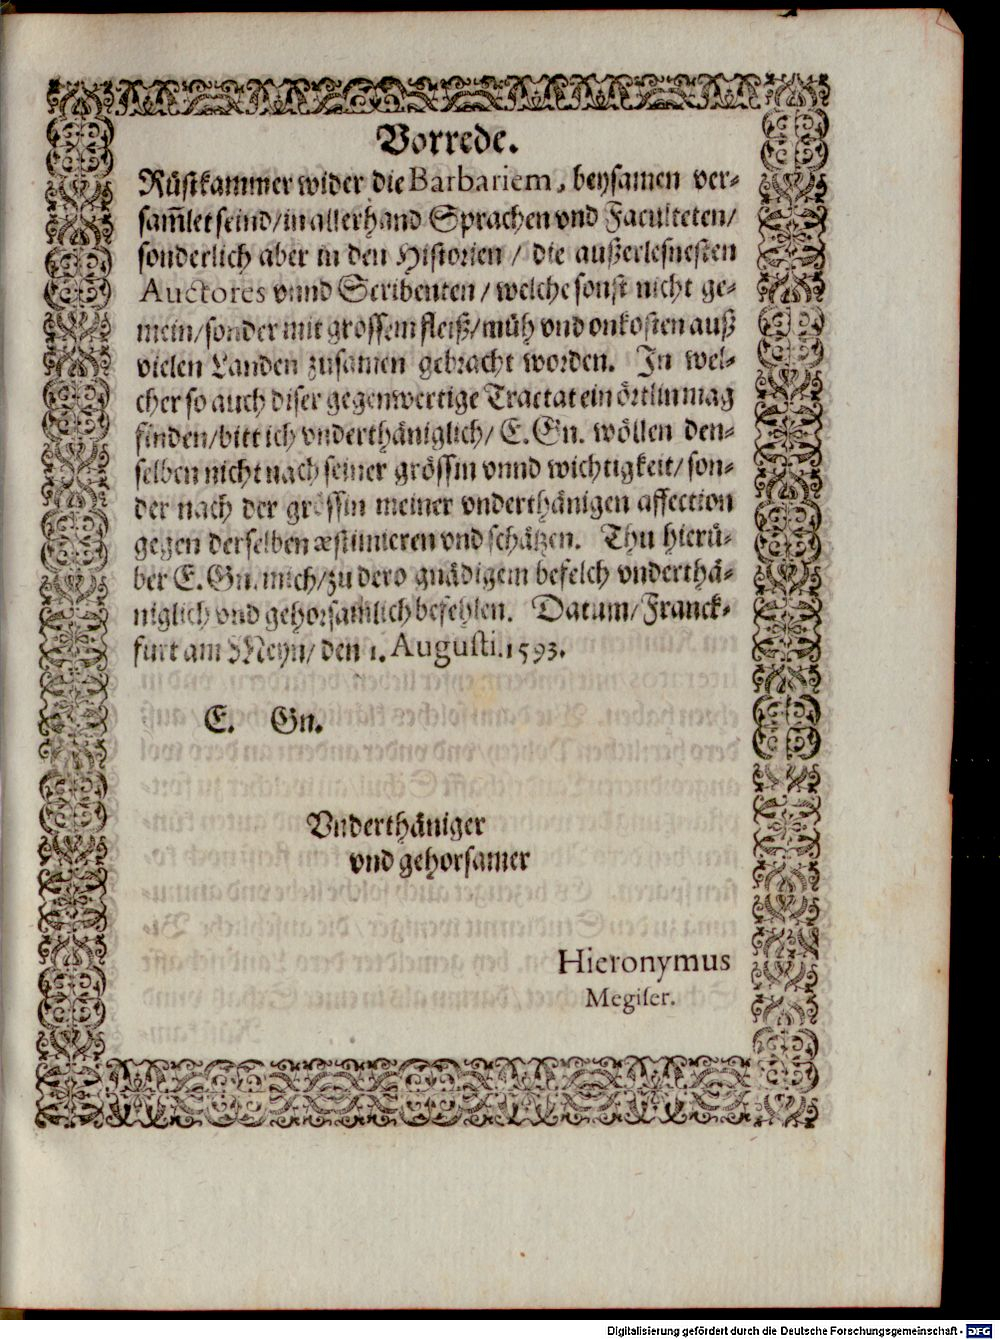 Vorrede.
Rüstkammer wider die Barbariem, beysamen ver-
sam̃let seind/in allerhand Sprachen vnd Faculteten/
sonderlich aber in den Historien / die außerlesnesten
Auctores vnnd Scribenten / welche sonst nicht ge-
mein/sonder mit grossem fleiß/müh vnd onkosten auß
vielen Landen zusamen gebracht worden. In wel-
cher so auch diser gegenwertige Tractat ein örtlin mag
finden/bitt ich vnderthäniglich/ E. Gn. wöllen den-
selben nicht nach seiner grössin vnnd wichtigkeit/ son-
der nach der grössin meiner vnderthänigen affection
gegen derselben æstimieren vnd schätzen. Thu hierü-
ber E. Gn. mich/zu dero gnädigem befelch vnderthä-
niglich vnd gehorsamlich befehlen. Datum/ Franck-
furt am Meyn/ den 1. Augusti. 1593.
E. Gn.
Vnderthäniger
vnd gehorsamer
Hieronymus
Megiser.
Digitalisierung gefördert durch die Deutsche Forschungsgemeinschaft - DFG